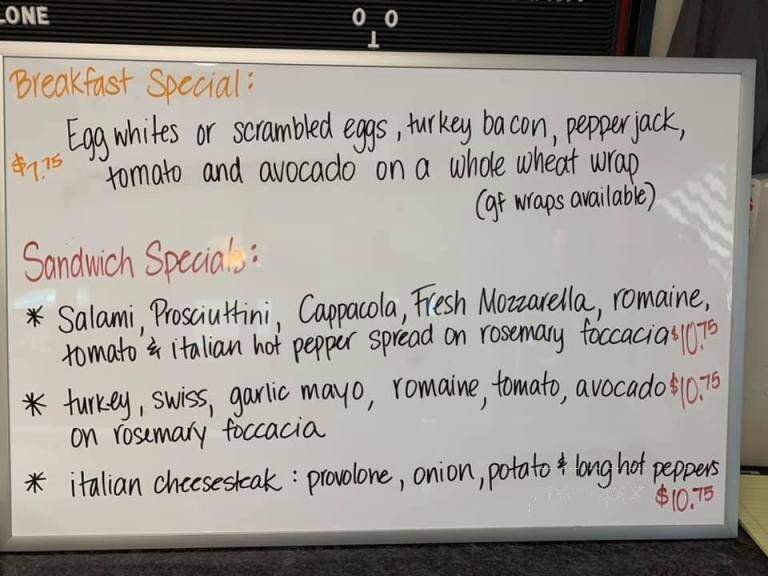 LONE
0 0
Breakfast Special:
Egg whites or scrambled eggs, turkey bacon, pepper jack,
$7.75 tomato and avocado on a whole wheat wrap
(gf wraps available)
Sandwich Specials:
* Salami, Prosciuttini, Cappacola, Fresh Mozzarella, romaine,
tomato & italian hot pepper spread on rosemary foccacia $10.75
* turkey, swiss, garlic mayo, romaine, tomato, avocado $10.75
on rosemary foccacia
* italian cheesesteak: provolone, onion, potato & long hot peppers
$10.75